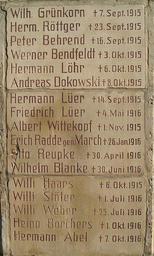 Wilh Grünkorn †7.Sept.1915
Herm. Röttger †23.Sept.1915
Peter Behrend †16.Sept.1915
Werner Bendfeldt †3.Okt.1915
Hermann Löhr †6.Okt.1915
Andreas Dokowski †8.Okt.1915
Hermann Lüer †14.Sept.1915
Friedrich Lüer †4.Mai 1916
Albert Wittekopf †1.Nov.1915
Erich Radde gen. March †26.Jan.1916
Otto Reupke †30.April 1916
Wilhelm Blanke †30.Juni 1916
Willi Haars †6.Okt.1915
Willi †1.Juli 1916
Willi Weber †25.Juli 1916
Heino Borchers †1.Okt.1916
Hermann Abel †7.Okt.1916